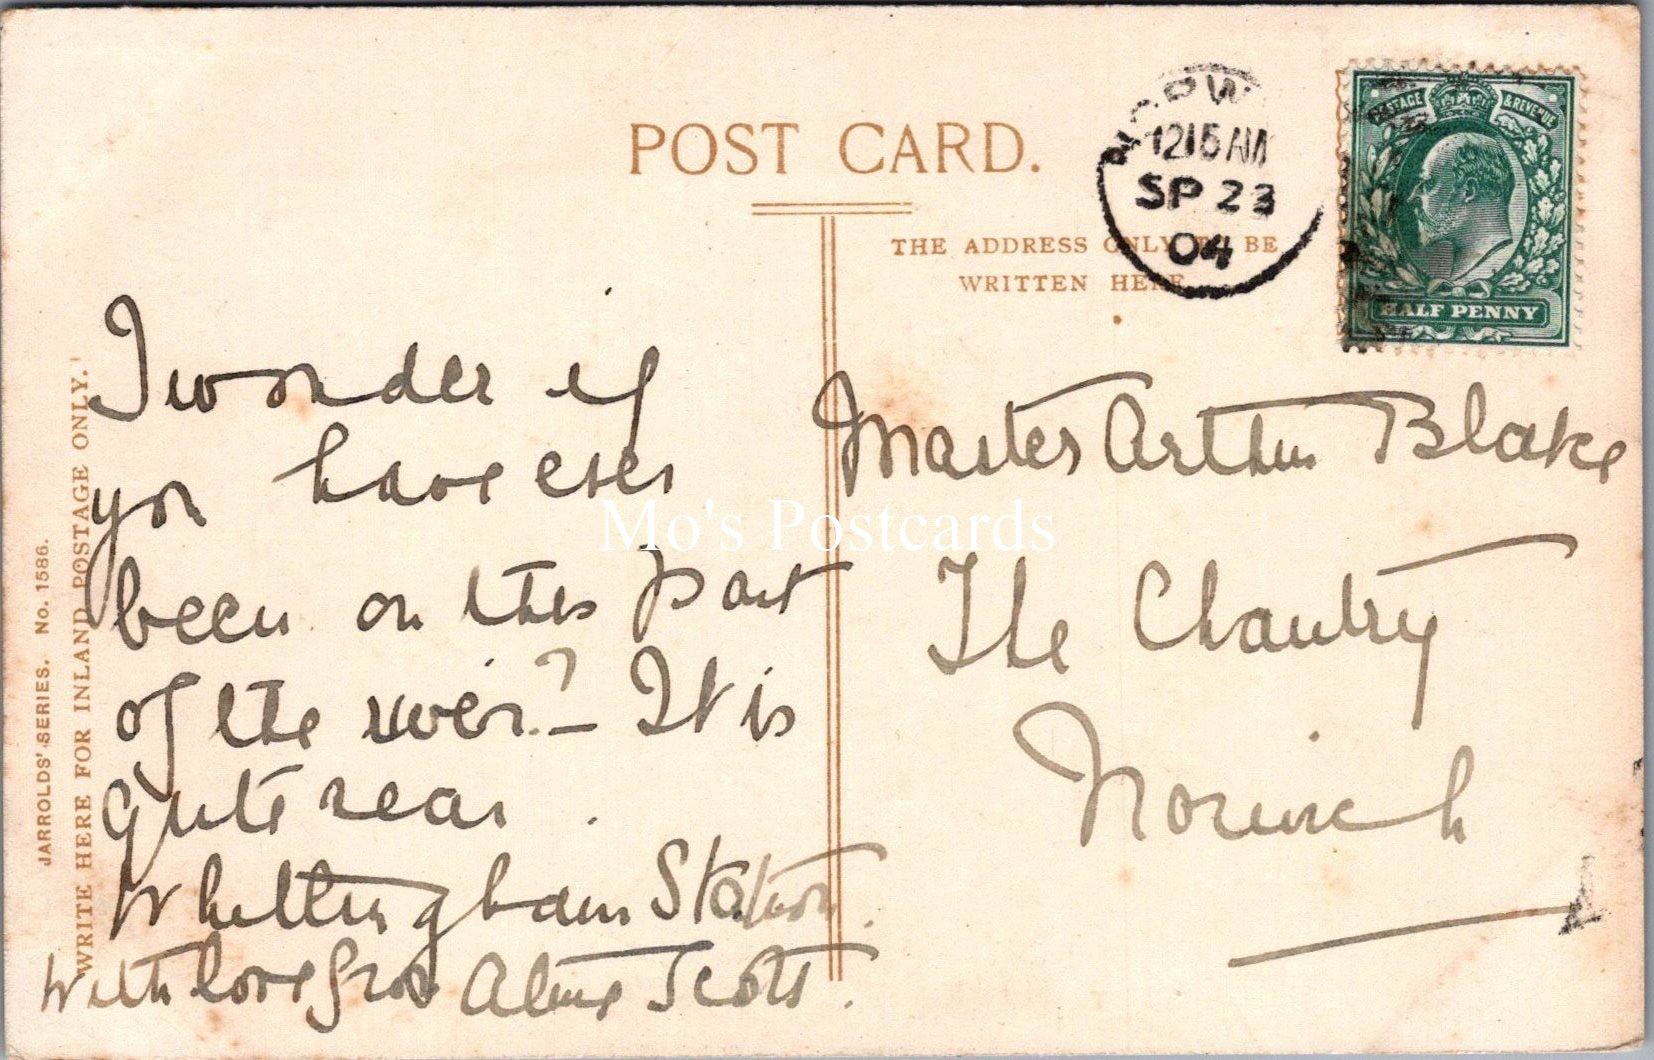 POST CARD.
THE ADDRESS ONLY TO BE
WRITTEN HERE.
NORW
1215 AM
SP 23
04
POSTAGE & REVENUE
HALF PENNY
JARROLDS' SERIES. No. 1586.
WRITE HERE FOR INLAND POSTAGE ONLY.
I wonder if
you have ever
been on this part
of the river? - It is
quite near
Whittingham Station.
With love from Scott.
Master Arthur Blake
The Chantry
Norwich
Mo's Postcards